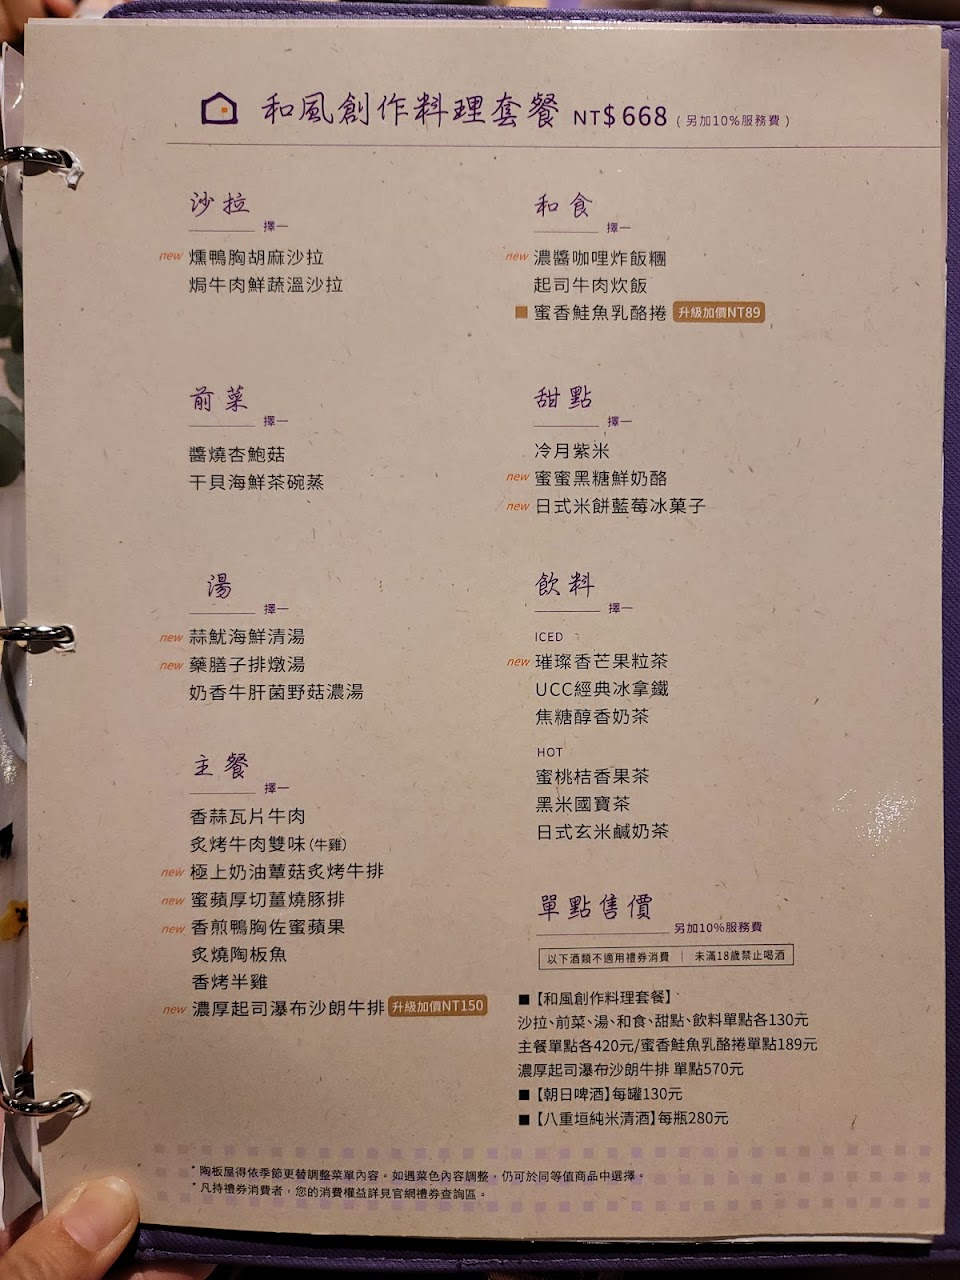 和風創作料理套餐 NT$668 (另加10%服務費)
沙拉 擇一
new 燻鴨胸胡麻沙拉
焗牛肉鮮蔬溫沙拉
前菜 擇一
醬燒杏鮑菇
干貝海鮮茶碗蒸
湯 擇一
new 蒜魷海鮮清湯
new 藥膳子排燉湯
奶香牛肝菌野菇濃湯
主餐 擇一
香蒜瓦片牛肉
炙烤牛肉雙味(牛雞)
new 極上奶油蕈菇炙烤牛排
new 蜜蘋厚切薑燒豚排
new 香煎鴨胸佐蜜蘋果
炙燒陶板魚
香烤半雞
new 濃厚起司瀑布沙朗牛排 升級加價NT150
和食 擇一
new 濃醬咖哩炸飯糰
起司牛肉炊飯
■ 蜜香鮭魚乳酪捲 升級加價NT89
甜點 擇一
冷月紫米
new 蜜蜜黑糖鮮奶酪
new 日式米餅藍莓冰菓子
飲料 擇一
ICED
new 璀璨香芒果粒茶
UCC經典冰拿鐵
焦糖醇香奶茶
HOT
蜜桃桔香果茶
黑米國寶茶
日式玄米鹹奶茶
單點售價 另加10%服務費
以下酒類不適用禮券消費 | 未滿18歲禁止喝酒
■【和風創作料理套餐】
沙拉、前菜、湯、和食、甜點、飲料單點各130元
主餐單點各420元/蜜香鮭魚乳酪捲單點189元
濃厚起司瀑布沙朗牛排 單點570元
■【朝日啤酒】每罐130元
■【八重垣純米清酒】每瓶280元
*陶板屋得依季節更替調整菜單內容。如遇菜色內容調整，仍可於同等值商品中選擇。
*凡持禮券消費者，您的消費權益詳見官網禮券查詢區。